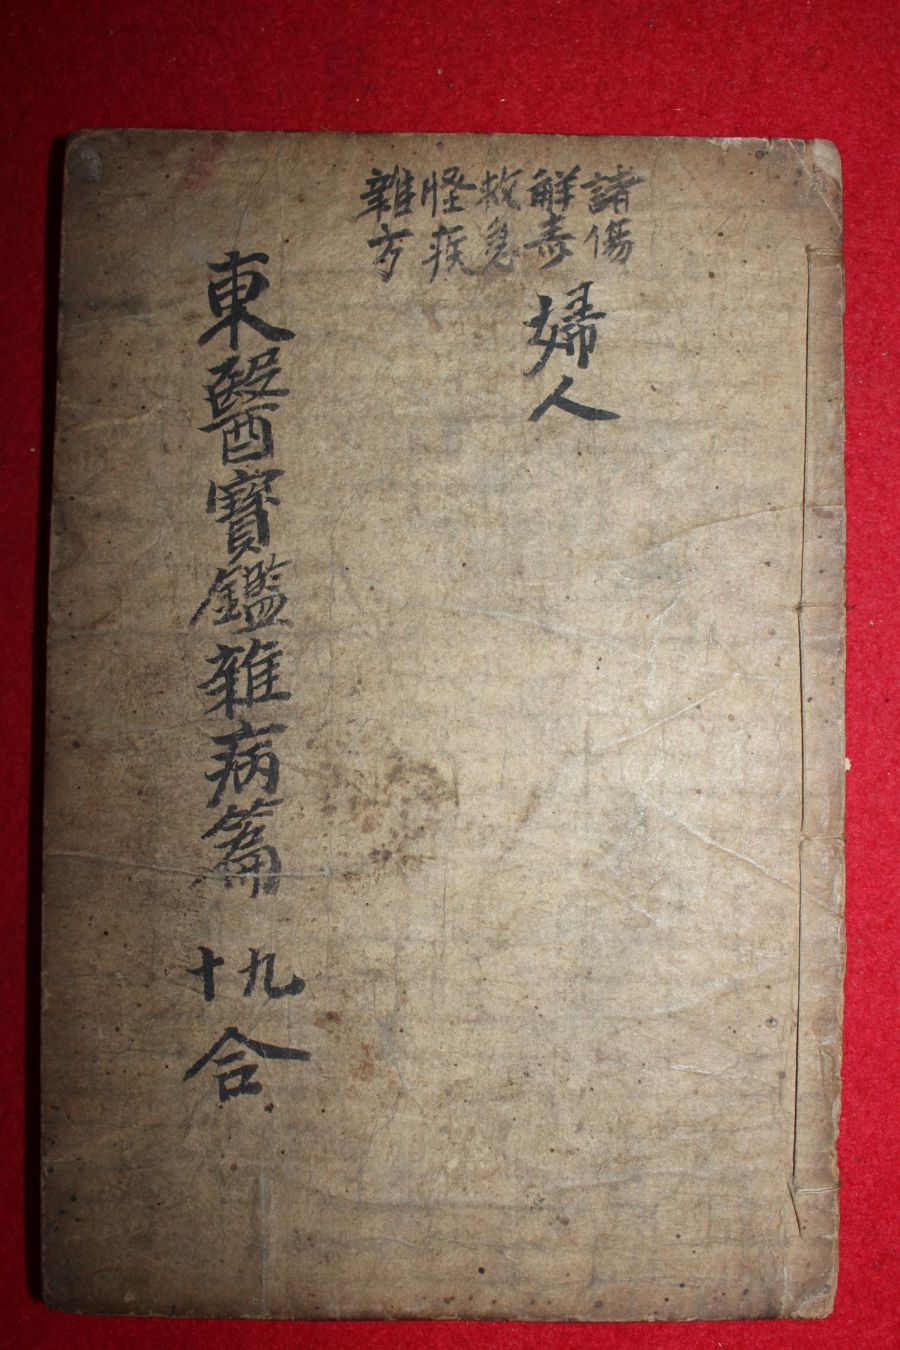 諸傷
解毒
救急
怪疾
雜方
婦人
東醫寶鑑雜病篇 九十合